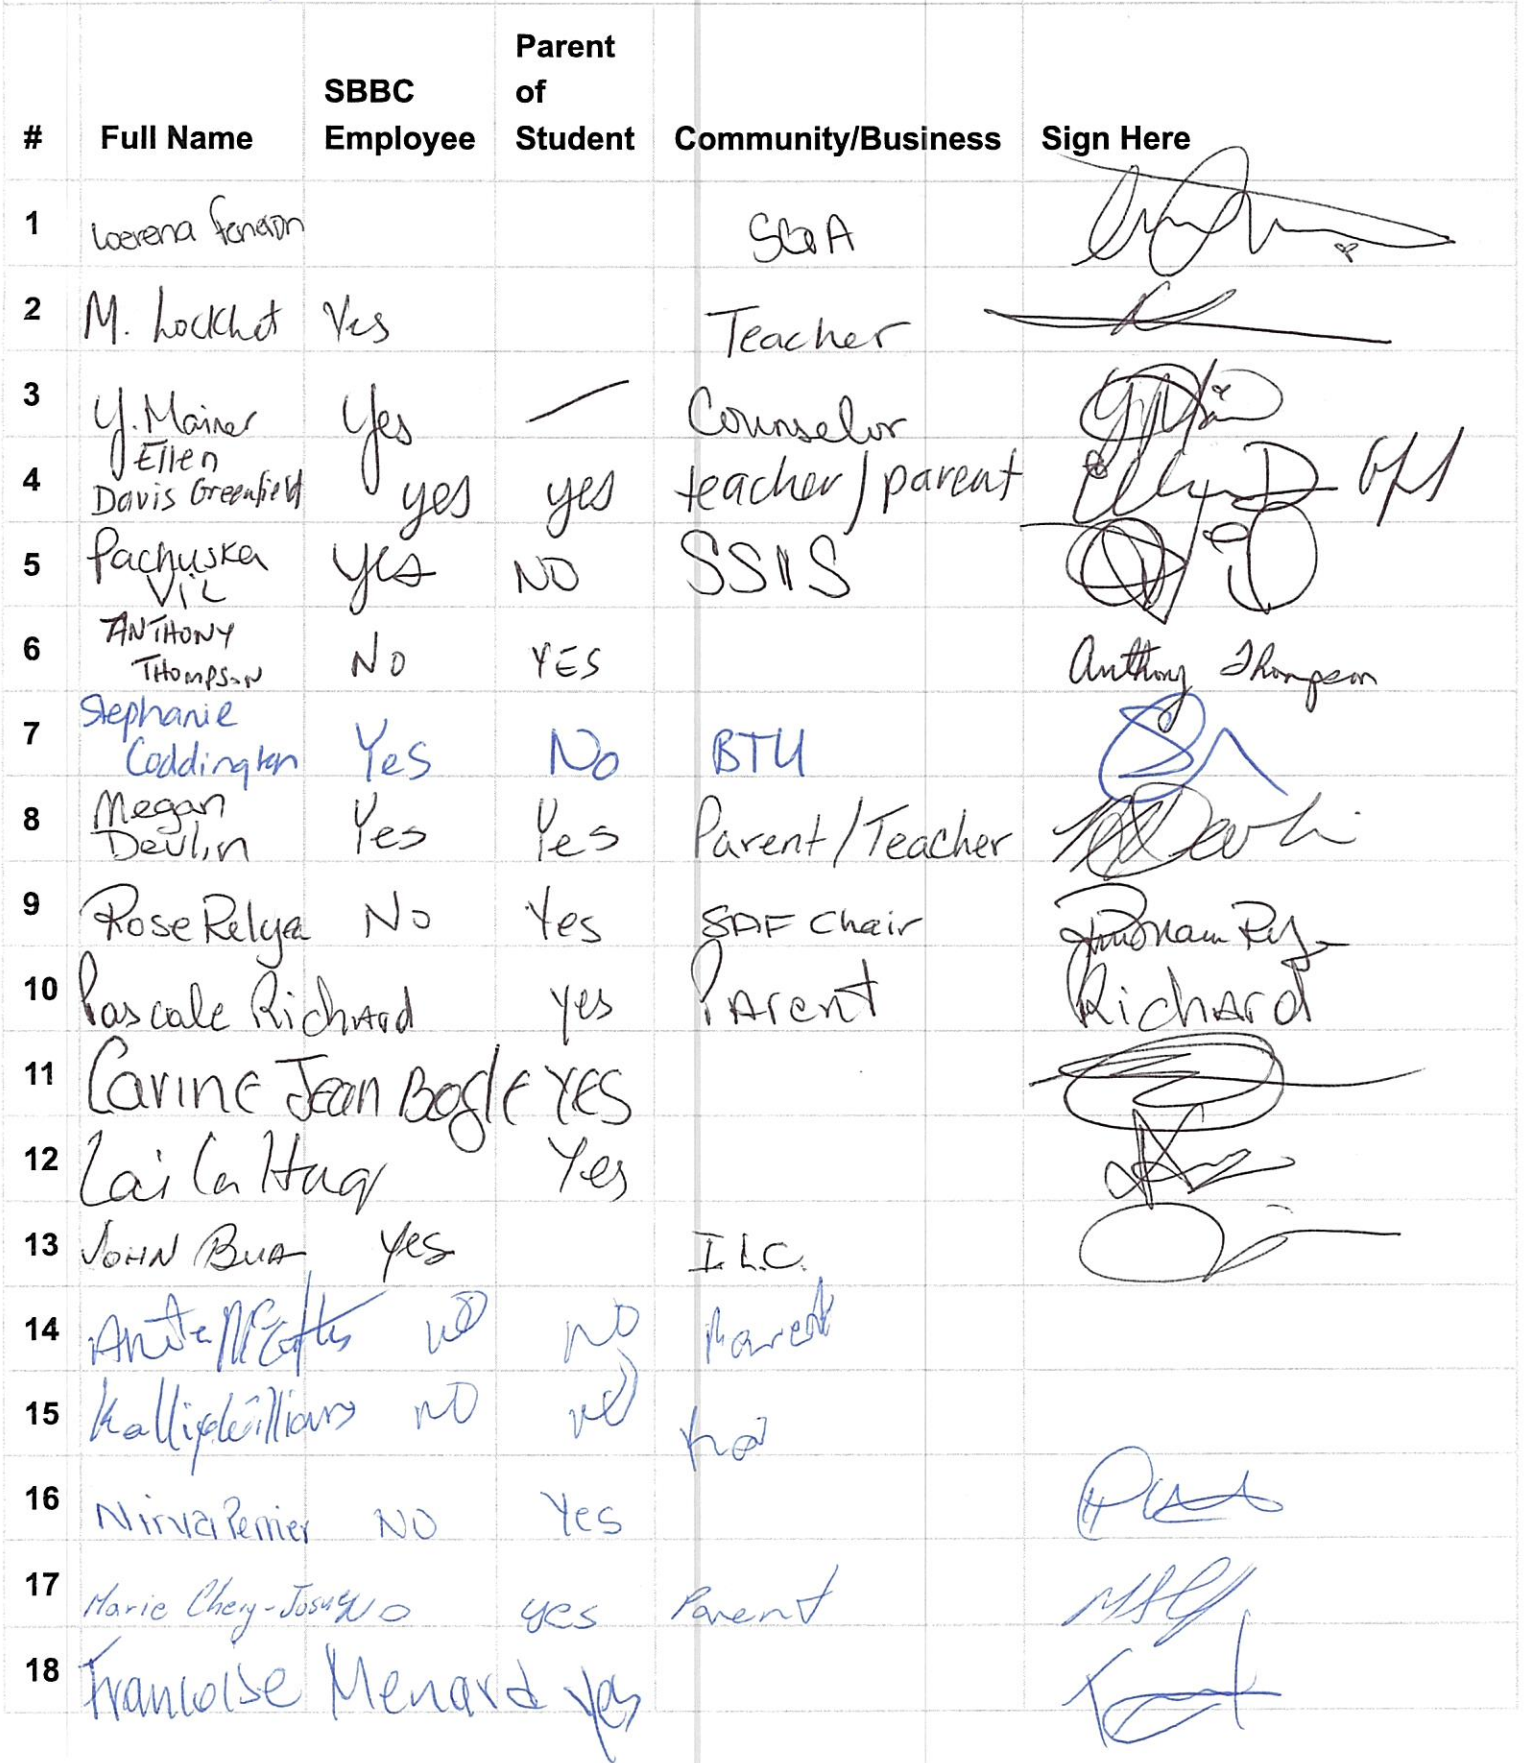 # Full Name SBBC Employee Parent of Student Community/Business Sign Here
1 SGA
2 M. Yes Teacher
3 Y. Mainer Yes Counselor
4 Ellen Davis Greenfield yes yes teacher/parent
5 Pachuska Vil Yes NO
6 ANTHONY THOMPSON NO YES Anthony Thompson
7 Stephanie Coddington Yes No BTU
8 Megan Devlin Yes Yes Parent/Teacher
9 Rose Relyea No Yes SAF Chair
10 Pascale Richard yes Parent Richard
11 Carine Jean Bogle YES
12 Laila Huq Yes
13 JOHN BUA Yes I.L.C.
14 NO NO
15 Williams NO NO
16 Nirva Perrier NO Yes
17 Marie Chery-Josue No yes Parent
18 Francoise Menard yes